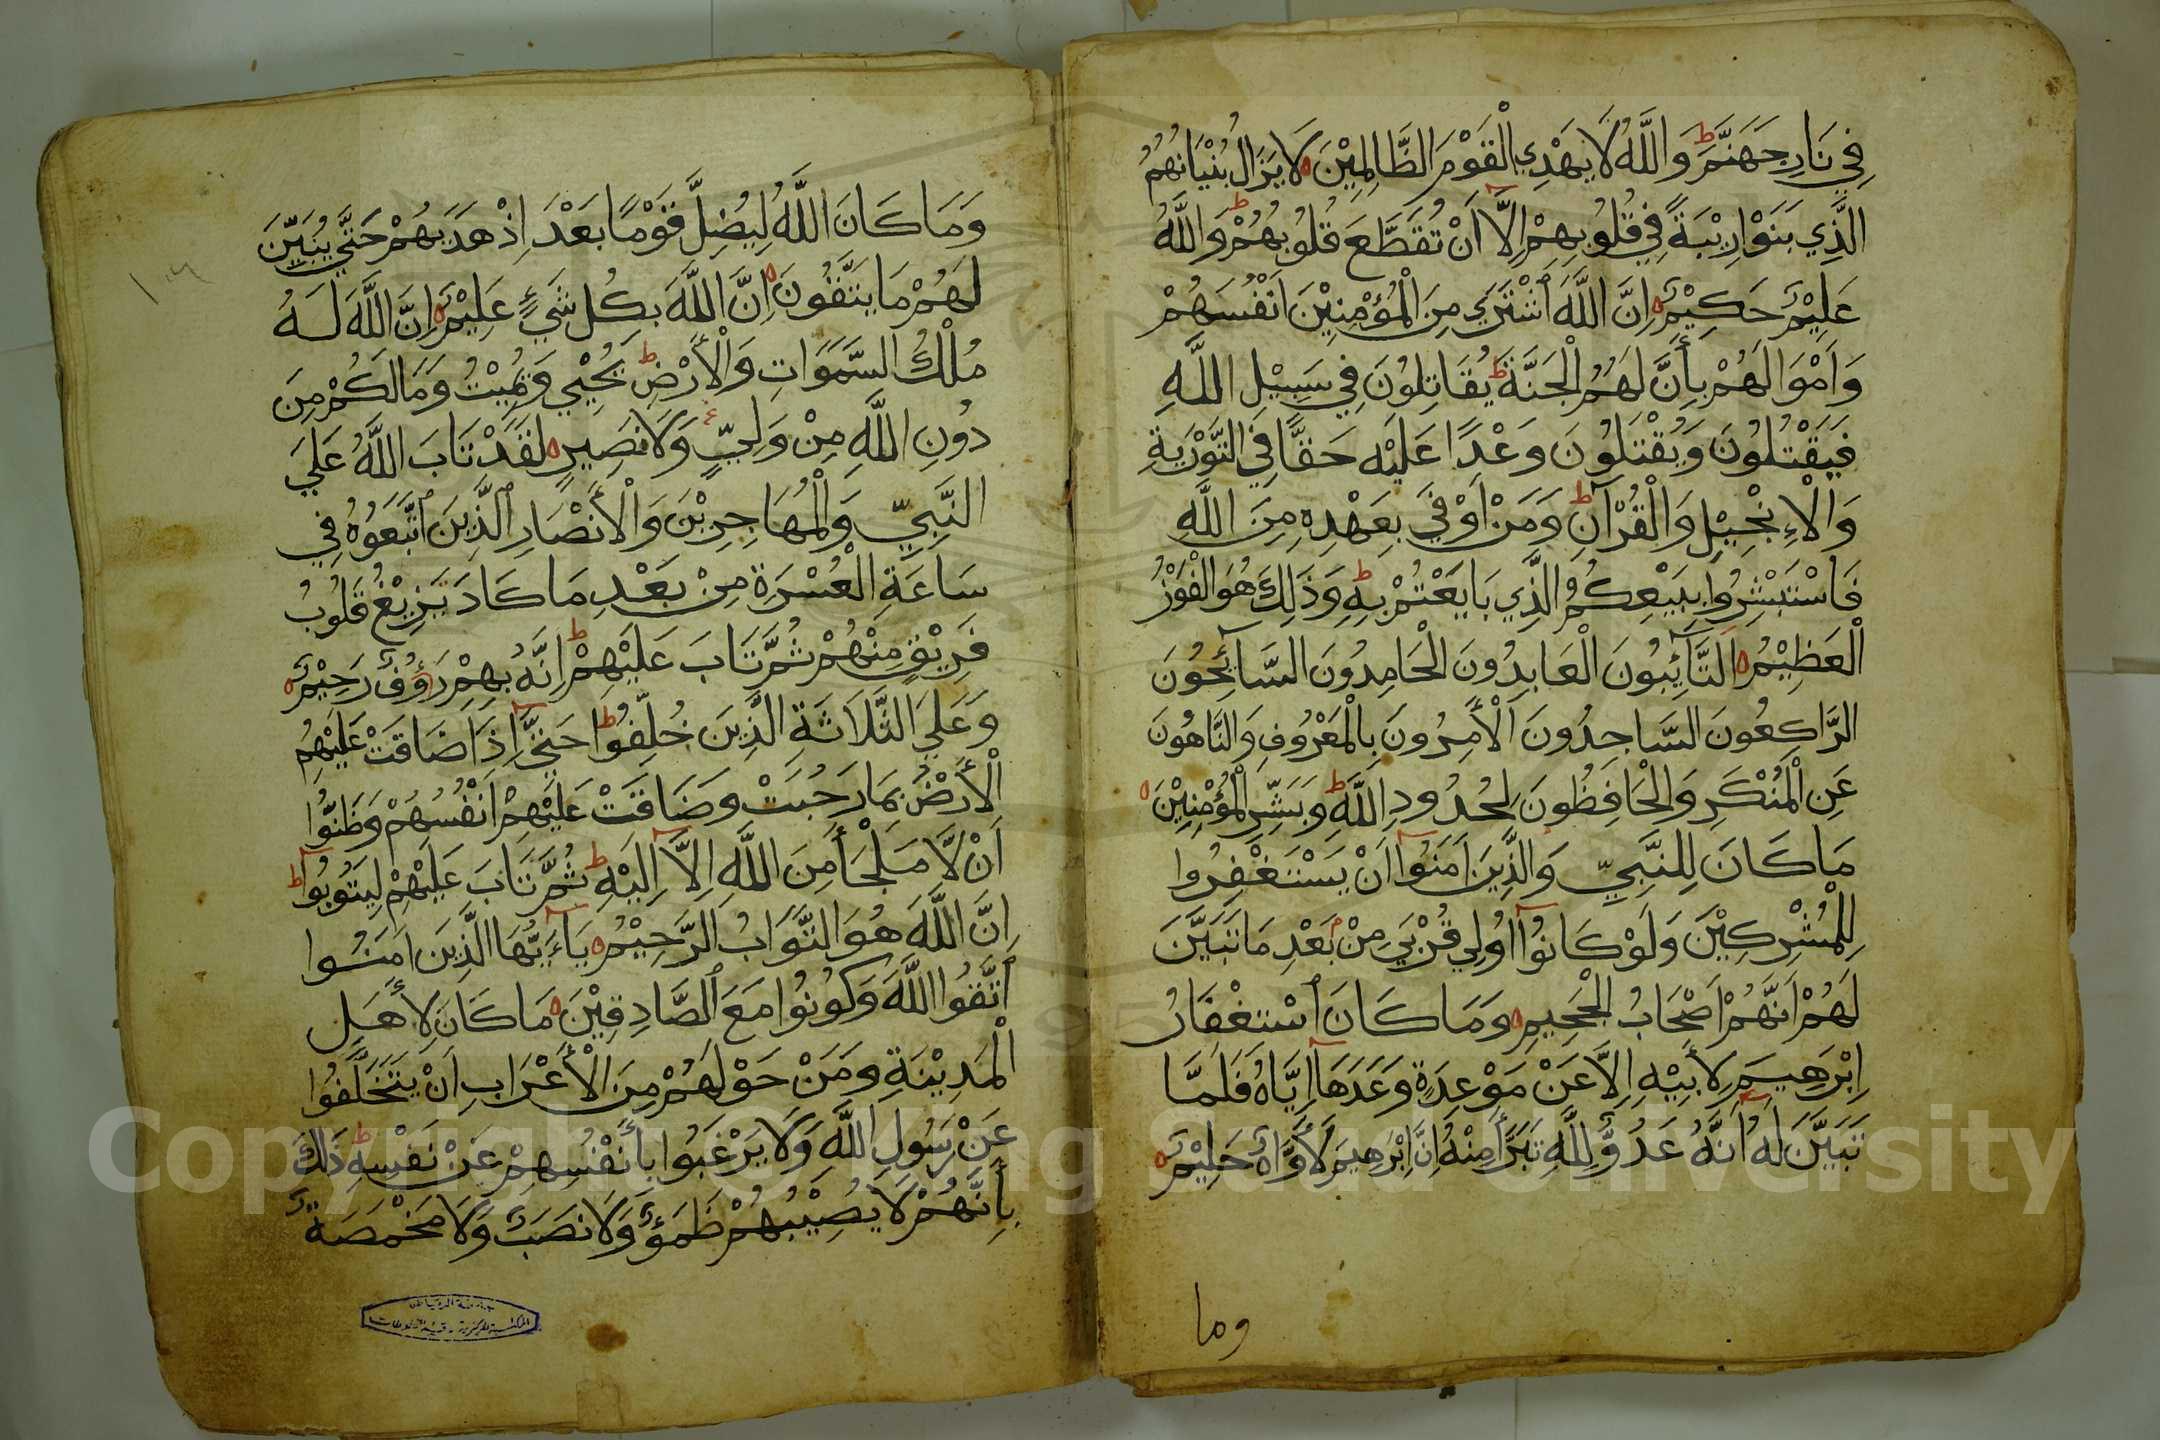 فِي نَارِ جَهَنَّمَ ط وَاللَّهُ لَا يَهْدِي الْقَوْمَ الظَّالِمِيْنَ ه لَا يَزَالُ بُنْيَانُهُمُ
الَّذِي بَنَوْا رِيْبَةً فِي قُلُوبِهِمْ اِلَّا اَنْ تُقَطَّعَ قُلُوبُهُمْ ط وَاللَّهُ
عَلِيْمٌ حَكِيْمٌ ه اِنَّ اللَّهَ اشْتَرَي مِنَ الْمُؤْمِنِيْنَ اَنْفُسَهُمْ
وَاَمْوَالَهُمْ بِأَنَّ لَهُمُ الْجَنَّةَ ط يُقَاتِلُونَ فِي سَبِيْلِ اللَّهِ
فَيَقْتُلُونَ وَيُقْتَلُونَ وَعْدًا عَلَيْهِ حَقًّا فِي التَّوْرَيةِ
وَالْاِنْجِيْلِ وَالْقُرْآنِ ط وَمَنْ اَوْفَي بِعَهْدِهِ مِنَ اللَّهِ
فَاسْتَبْشِرُوا بِبَيْعِكُمُ الَّذِي بَايَعْتُمْ بِهِ ط وَذَلِكَ هُوَ الْفَوْزُ
الْعَظِيْمُ ه اَلتَّآئِبُونَ الْعَابِدُونَ الْحَامِدُونَ السَّآئِحُونَ
الرَّاكِعُونَ السَّاجِدُونَ الْأَمِرُونَ بِالْمَعْرُوفِ وَالنَّاهُونَ
عَنِ الْمُنْكَرِ وَالْحَافِظُونَ لِحُدُودِ اللَّهِ ط وَبَشِّرِ الْمُؤْمِنِيْنَ ه
مَا كَانَ لِلنَّبِيِّ وَالَّذِينَ اَمَنُوآ اَنْ يَسْتَغْفِرُوا
لِلْمُشْرِكِيْنَ وَلَوْ كَانُوآ اُولِي قُرْبَي مِنْ بَعْدِ مَا تَبَيَّنَ
لَهُمْ اَنَّهُمْ اَصْحَابُ الْجَحِيمِ ه وَمَا كَانَ اسْتِغْفَارُ
اِبْرَهِيمَ لِأَبِيْهِ اِلَّا عَنْ مَوْعِدَةٍ وَعَدَهَآ اِيَّاهُ فَلَمَّا
تَبَيَّنَ لَهُ اَنَّهُ عَدُوٌّ لِلَّهِ تَبَرَّأَ مِنْهُ اِنَّ اِبْرَهِيمَ لَأَوَّاهٌ حَلِيْمٌ ه
وما
وَمَا كَانَ اللَّهُ لِيُضِلَّ قَوْمًا بَعْدَ اِذْ هَدَيهُمْ حَتَّي يُبَيِّنَ
لَهُمْ مَا يَتَّقُونَ ه اِنَّ اللَّهَ بِكُلِّ شَيْءٍ عَلِيْمٌ ه اِنَّ اللَّهَ لَهُ
مُلْكُ السَّمَوَاتِ وَالْأَرْضِ ط يُحْيِي وَيُمِيْتُ وَمَا لَكُمْ مِنَ
دُونِ اللَّهِ مِنْ وَلِيٍّ وَلَا نَصِيرٍ ه لَقَدْ تَابَ اللَّهُ عَلَي
النَّبِيِّ وَالْمُهَاجِرِيْنَ وَالْأَنْصَارِ الَّذِينَ اتَّبَعُوهُ فِي
سَاعَةِ الْعُسْرَةِ مِنْ بَعْدِ مَا كَادَ يَزِيْغُ قُلُوبُ
فَرِيْقٍ مِنْهُمْ ثُمَّ تَابَ عَلَيْهِمْ ط اِنَّهُ بِهِمْ رَؤُفٌ رَحِيْمٌ ه
وَعَلَي الثَّلَاثَةِ الَّذِينَ خُلِّفُوا ط حَتَّيٓ اِذَا ضَاقَتْ عَلَيْهِمُ
الْأَرْضُ بِمَا رَحُبَتْ وَضَاقَتْ عَلَيْهِمْ اَنْفُسُهُمْ وَظَنُّوا
اَنْ لَّا مَلْجَأَ مِنَ اللَّهِ اِلَّآ اِلَيْهِ ط ثُمَّ تَابَ عَلَيْهِمْ لِيَتُوبُوا ط
اِنَّ اللَّهَ هُوَ التَّوَّابُ الرَّحِيْمُ ه يَآءَيُّهَا الَّذِينَ اَمَنُوا
اتَّقُوا اللَّهَ وَكُونُوا مَعَ الصَّادِقِيْنَ ه مَا كَانَ لِأَهْلِ
الْمَدِيْنَةِ وَمَنْ حَوْلَهُمْ مِنَ الْأَعْرَابِ اَنْ يَتَخَلَّفُوا
عَنْ رَسُولِ اللَّهِ وَلَا يَرْغَبُوا بِأَنْفُسِهِمْ عَنْ نَفْسِهِ ط ذَلِكَ
بِأَنَّهُمْ لَا يُصِيْبُهُمْ ظَمَؤٌ وَلَا نَصَبٌ وَلَا مَخْمَصَةٌ
جامعة الرياض
المكتبة المركزية - قسم المخطوطات
Copyright © King Saud University